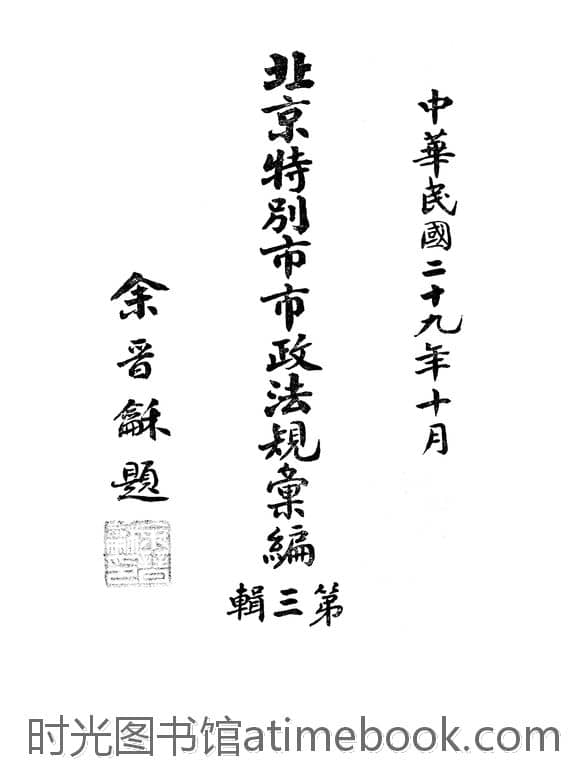 中華民國二十九年十月
北京特別市市政法規彙編
第三輯
余晉龢題
时光图书馆atimebook.com